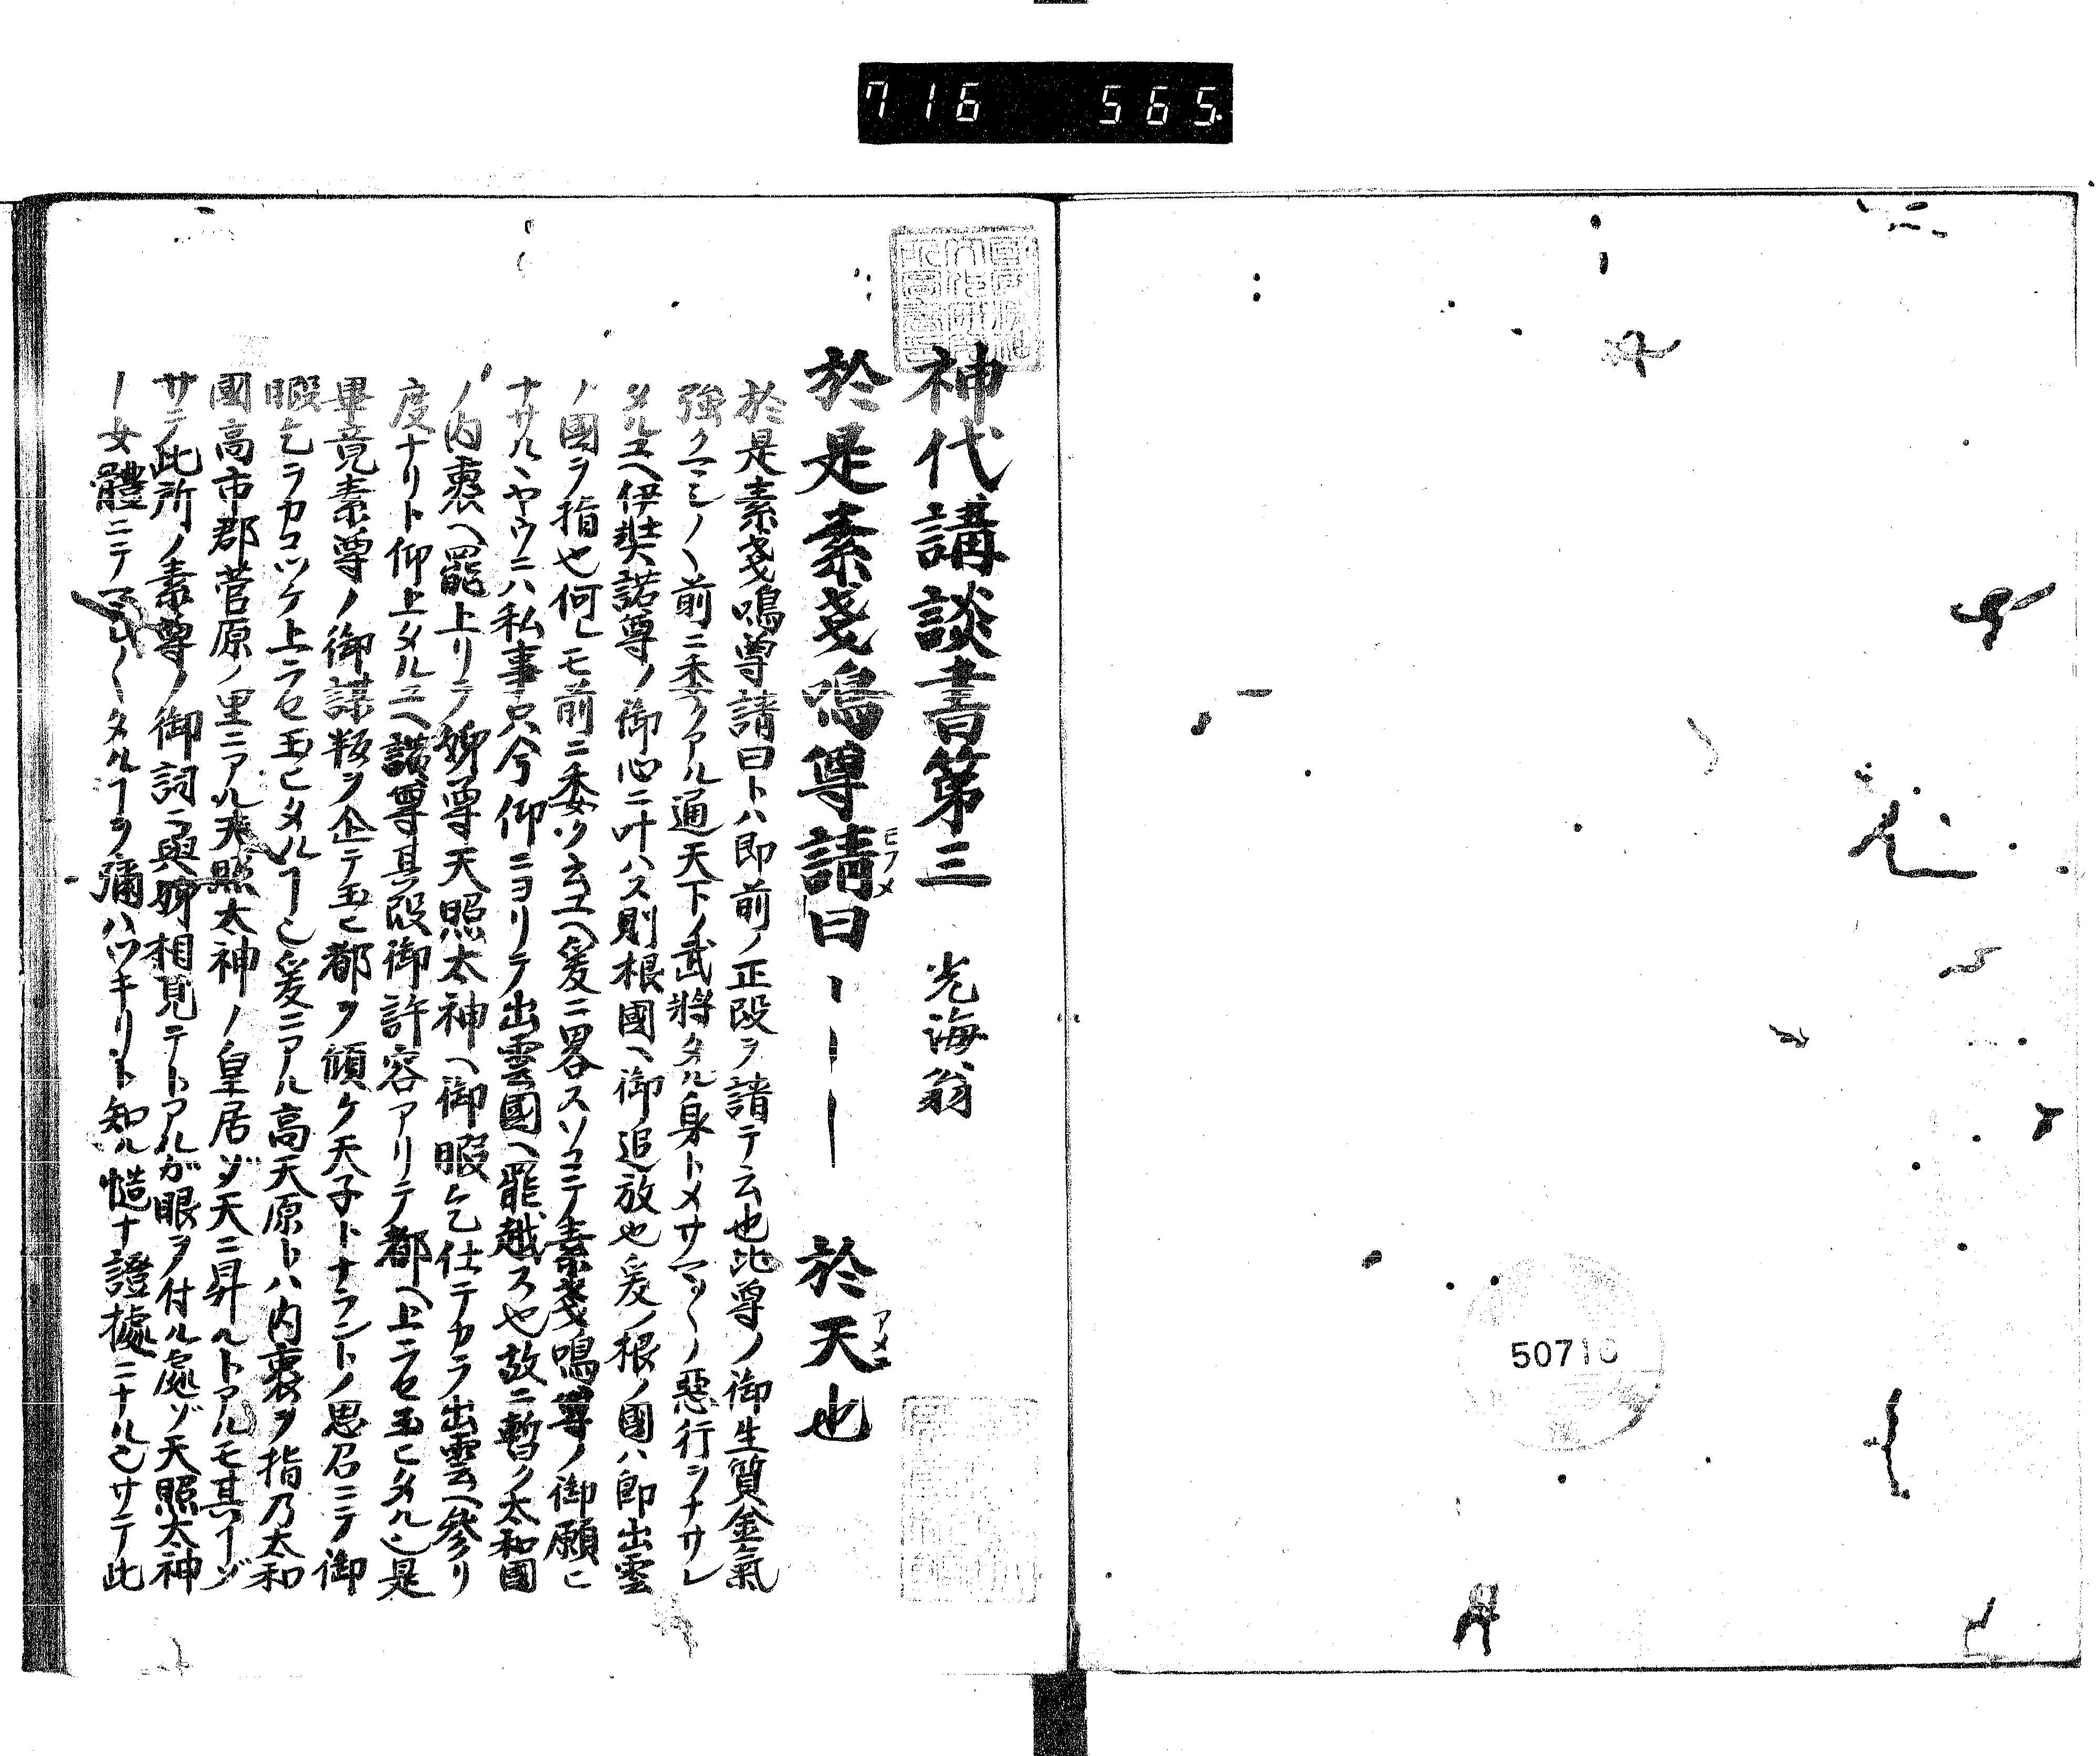 716 565
神代講談書第三 光海翁
於是素戔嗚尊請曰ーーー 於天也
モフメ
アメニ
於是素戔鳴尊請曰トハ即前ノ正段ヲ請テ云也此尊ノ御生質金氣
強ク前ニ委アル通天下ノ武將タル身トメサマ〱ノ惡行ヲナサレ
タルユヘ伊奘諾尊ノ御心ニ叶ハス則根國ヘ御追放也爰ノ根ノ國ハ即出雲
ノ國ヲ指也何レモ前ニ委ツ云ユヘ爰ニ畧スソコニテ素戔鳴尊ノ御願ニ
ナサルヽヤウニハ私事只今仰ニヨリテ出雲國ヘ罷越ス也故ニ暫ク太和國
ノ内裏ヘ罷上リテ姉尊天照太神ヘ御暇乞仕テカラ出雲ヘ參リ
度ナリト仰上タルユヘ諾尊其段御許容アリテ都ヘ上ラセ玉ヒタル也是
畢竟素尊ノ御謀叛ヲ企テ玉ヒ都ヲ傾ケ天子トナラントノ思召ニテ御
暇乞ヲカコツケ上ラセ玉ヒタルヿ也爰ニアル高天原トハ内裏ヲ指乃太和
國高市郡菅原ノ里ニアル天照太神ノ皇居ゾ天ニ昇ルトアルモ其ヿゾ
サテ此所ノ素尊ノ御詞ニ與姉相見テトアルガ眼ヲ付ル處ゾ天照太神
ノ女體ニテ タルヿヲ彌ハツキリト知ル慥ナ證據ニナル也サテ此
50716